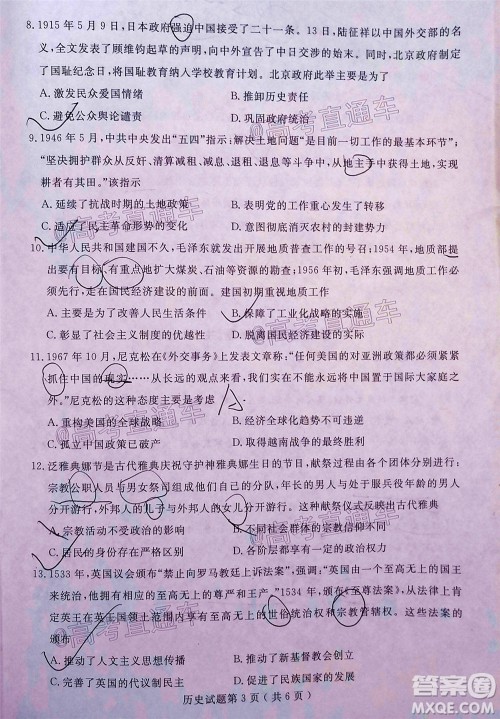 8. 1915 年 5 月 9 日，日本政府强迫中国接受了二十一条。13 日，陆征祥以中国外交部的名
义，全文发表了顾维钧起草的声明，向中外宣告了中日交涉的始末。同时，北京政府制
定了国耻纪念日，并将国耻教育纳入学校教育计划。北京政府此举主要是为了
A. 激发民众爱国情绪 B. 推卸历史责任
C. 避免公众舆论谴责 D. 巩固政府统治
9. 1946 年 5 月，中共中央发出“五四”指示：解决土地问题“是目前一切工作的最基本环节”；
“坚决拥护群众从反奸、清算减租、减息、退租、退息等斗争中，从地主手中获得土地，实现
耕者有其田”。该指示
A. 延续了抗战时期的土地政策 B. 表明党的工作重心发生了转移
C. 适应了民主革命形势的变化 D. 彻底消灭农村的封建势力
10. 中华人民共和国建国不久，毛泽东就发出开展地质普查工作的号召；1954 年，地质部提
出要有目标、有重点地扩大煤炭、石油等资源的勘查；1956 年，毛泽东强调地质工作必
须先行，走在国民经济建设的前面。建国初期重视地质工作
A. 主要是为了改善人民生活 B. 保障了工业化战略的实施
C. 彰显了社会主义制度的优越性 D. 扭转了国民经济发展的困局
11. 1967 年 10 月，尼克松在《外交事务》上发表文章称：“任何美国的对亚洲政策都必须紧紧
抓住中国的现实……从长远的观点来看，我们不能永远将中国置于国际大家庭之
外。”尼克松的这种态度主要是考虑
A. 重构美国的全球战略 B. 经济全球化趋势不可逆
C. 孤立中国政策已破产 D. 取得越南战争的胜利
12. 泛雅典娜节是古代雅典庆祝守护神雅典娜生日的节日，献祭过程由各团体分别进行：
宗教公职人员与男女祭司组成他们自己的献祭团体，年长的人与处于服兵役年龄的男人
分开游行，外邦人的儿子与外邦人的女儿分开游行。这种献祭仪式反映出古代雅典
A. 宗教活动不受政治的影响 B. 不同社会群体的意愿得到尊重
C. 居民的身份存在严格差异 D. 各阶层都有一定的政治权力
13. 1533 年，英国议会颁布“禁止向罗马教廷上诉法案”，强调：“英国由一个至高无上的国王
来统治，他拥有至高无上的尊荣和王权。”1534 年，又颁布《至尊法案》，从法律上肯
定英王在“英格兰王国”领土范围内享有至高无上的世俗统治权和宗教管辖权。这些法案的
颁布
A. 推动了人文主义思想传播 B. 推动了新基督教会创立
C. 有利于社会的转型和发展 D. 促进了民族国家的发展
历史试题第 3 页（共 6 页）
@高考直通车
答案圈
MXQE.COM